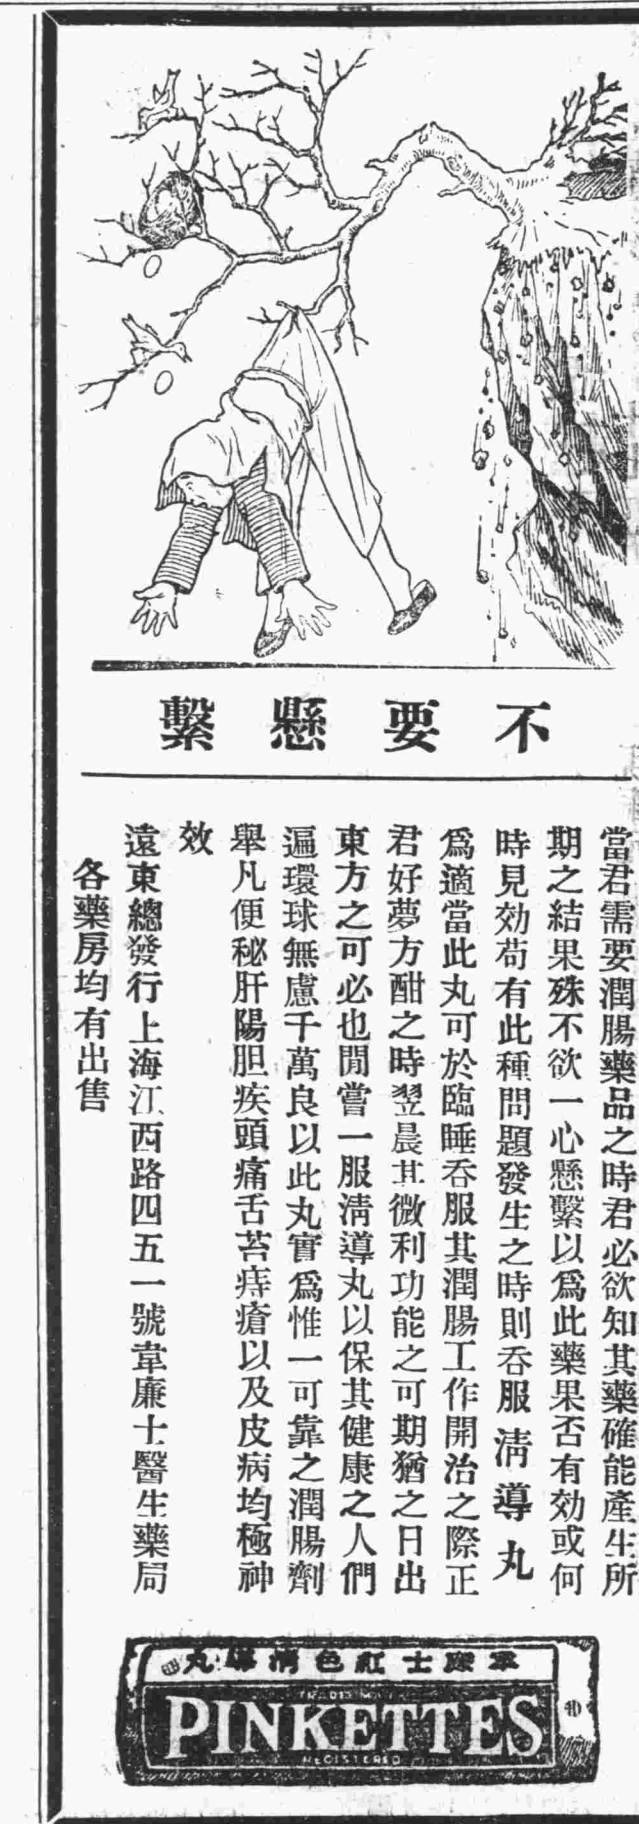 不要懸繫
當君需要潤腸藥品之時君必欲知其藥確能產生所
期之結果殊不欲一心懸繫以爲此藥果否有効或何
時見効苟有此種問題發生之時則吞服清導丸
爲適當此丸可於臨睡吞服其潤腸工作開治之際正
君好夢方酣之時翌晨其微利功能之可期猶之日出
東方之可必也閒嘗一服清導丸以保其健康之人們
遍環球無慮千萬良以此丸實爲惟一可靠之潤腸劑
舉凡便秘肝陽胆疾頭痛舌苔痔瘡以及皮病均極神
效
遠東總發行上海江西路四五一號韋廉士醫生藥局
各藥房均有出售
韋廉士紅色清導丸
TRADE MARK
PINKETTES
REGISTERED